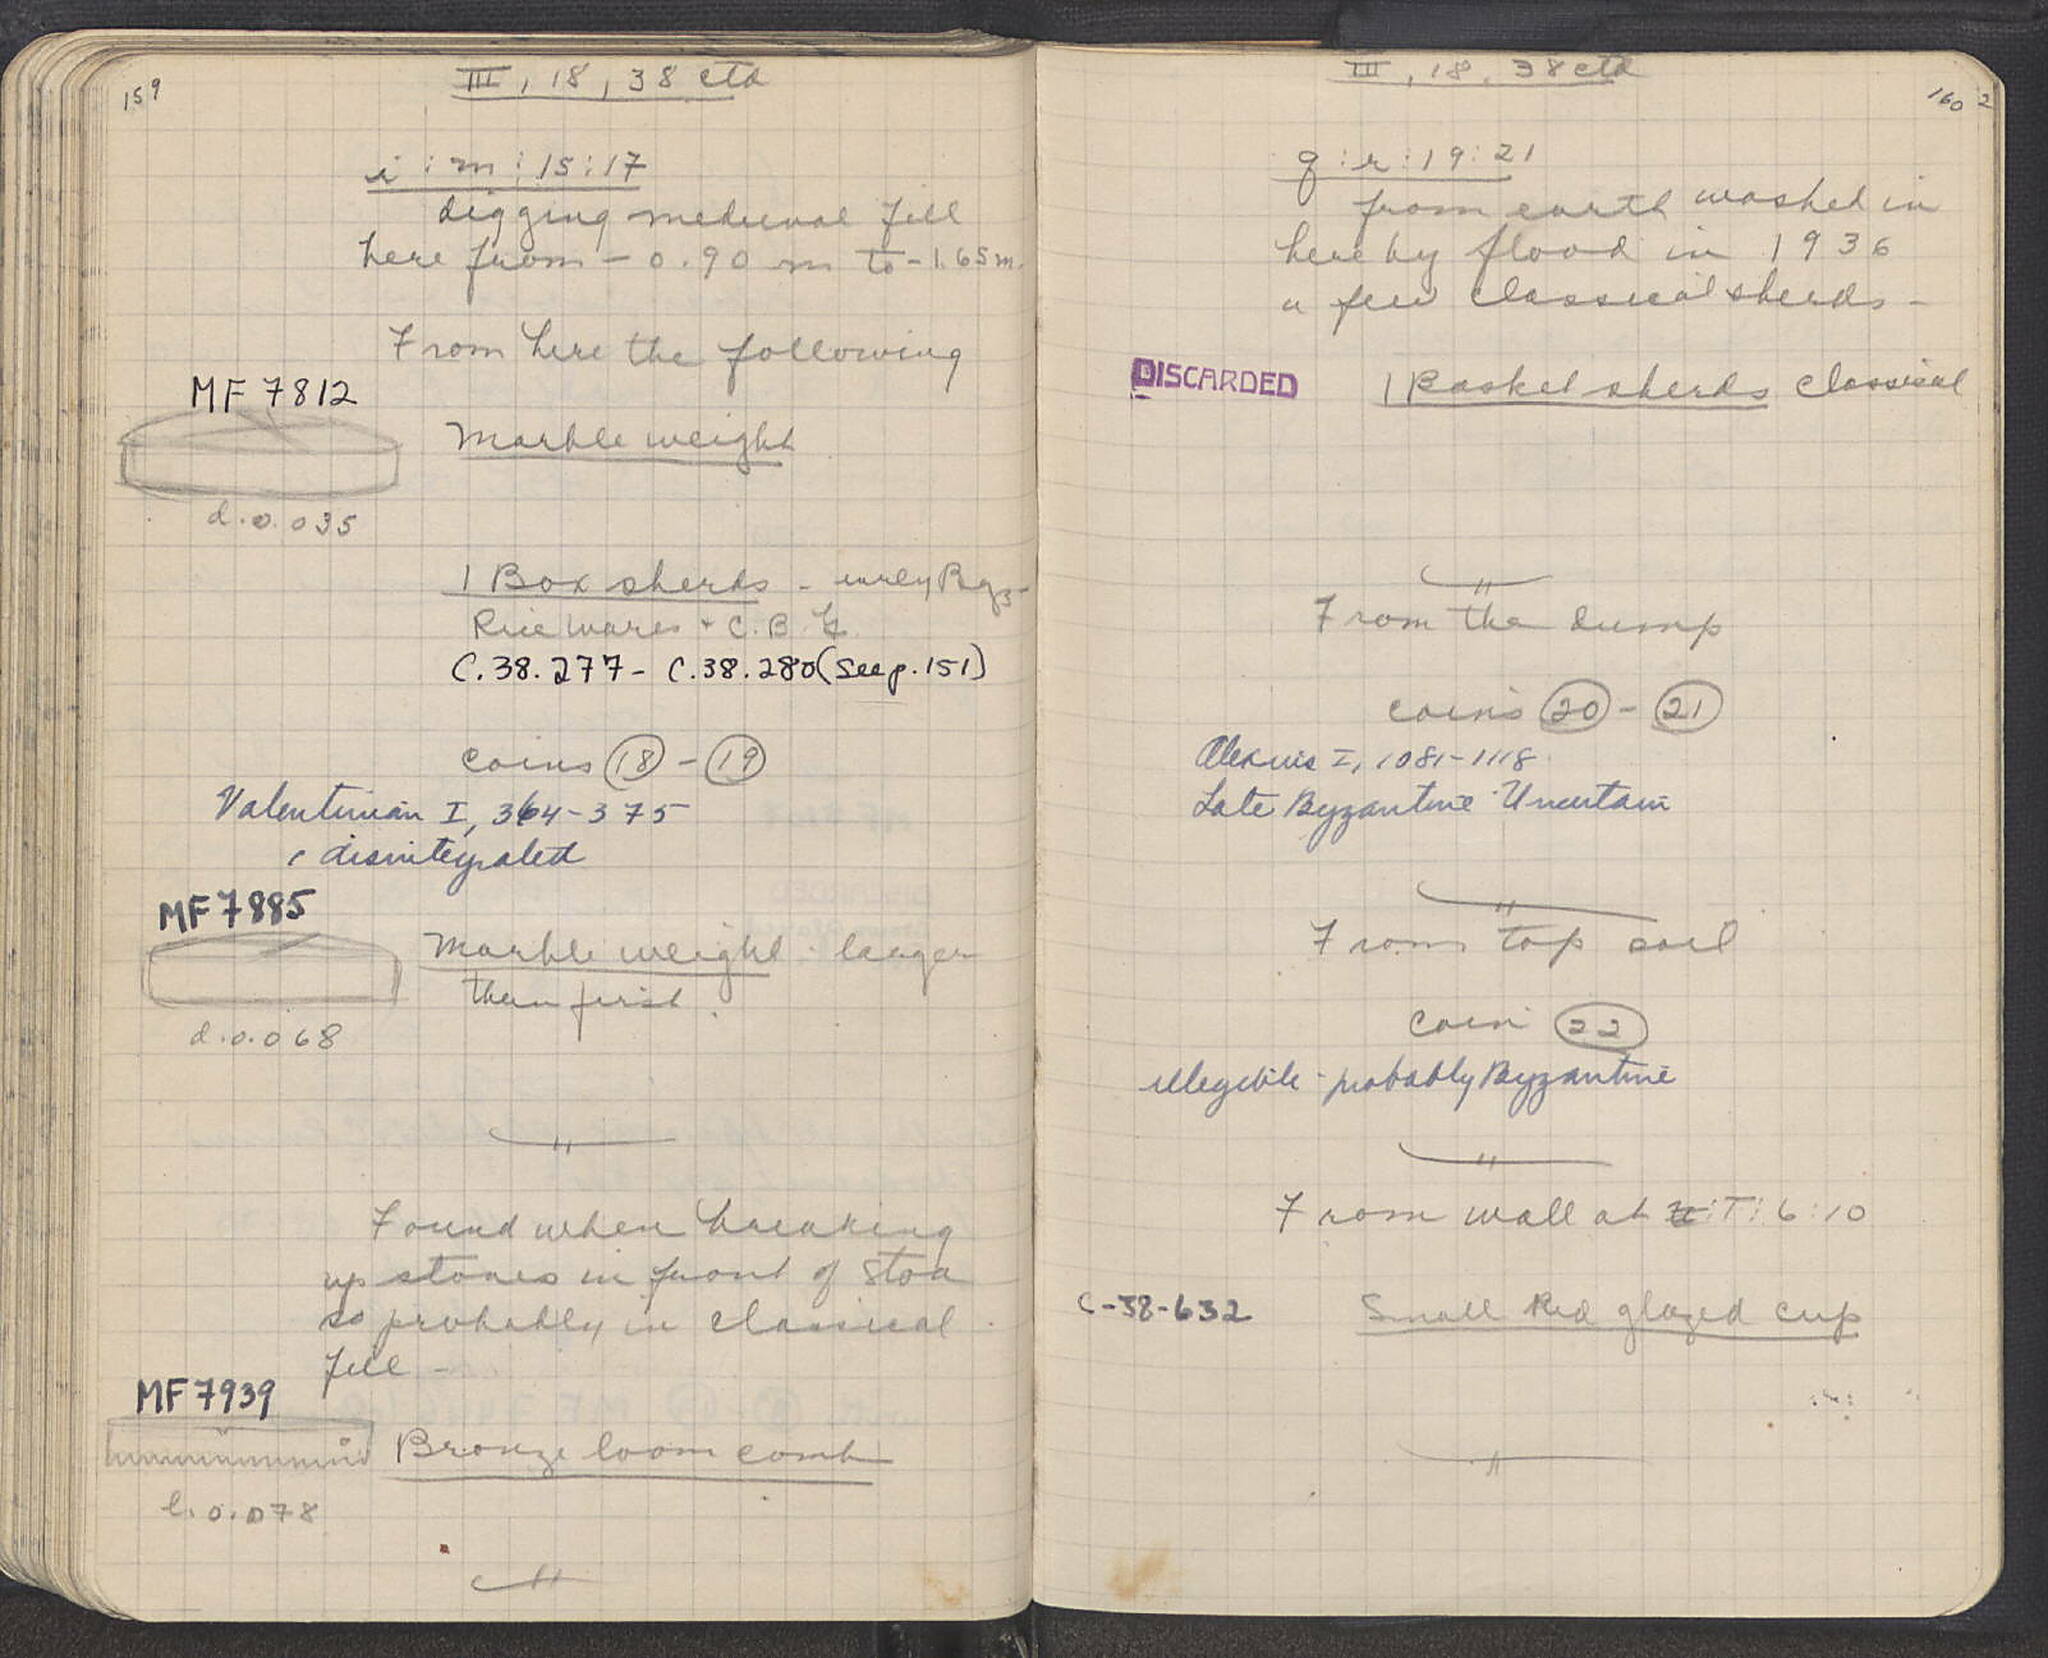 159
III, 18, 38 ctd
i : m : 15 : 17
digging medieval fill
here from - 0.90 m to - 1.65 m.
From here the following
MF 7812
Marble weight
d. 0.035
1 Box sherds - early Byz-
Rice wares + C.B.
C.38.277 - C.38.280 (See p. 151)
coins 18 - 19
Valentinian I, 364-375
1 disintegrated
MF 7885
Marble weight - larger
than first.
d. 0.068
Found when breaking
up stones in front of Stoa
so probably in classical
fill -
MF 7939
Bronze loom comb
l. 0.078
III, 18, 38 ctd
160
2
q : r : 19 : 21
from earth washed in
here by flood in 1936
a few classical sherds -
DISCARDED
1 Basket sherds classical
From the dump
coins 20 - 21
Alexius I, 1081-1118
Late Byzantine Uncertain
From top soil
coin 22
illegible - probably Byzantine
From wall at : T : 6 : 10
C-38-632
Small Red glazed cup